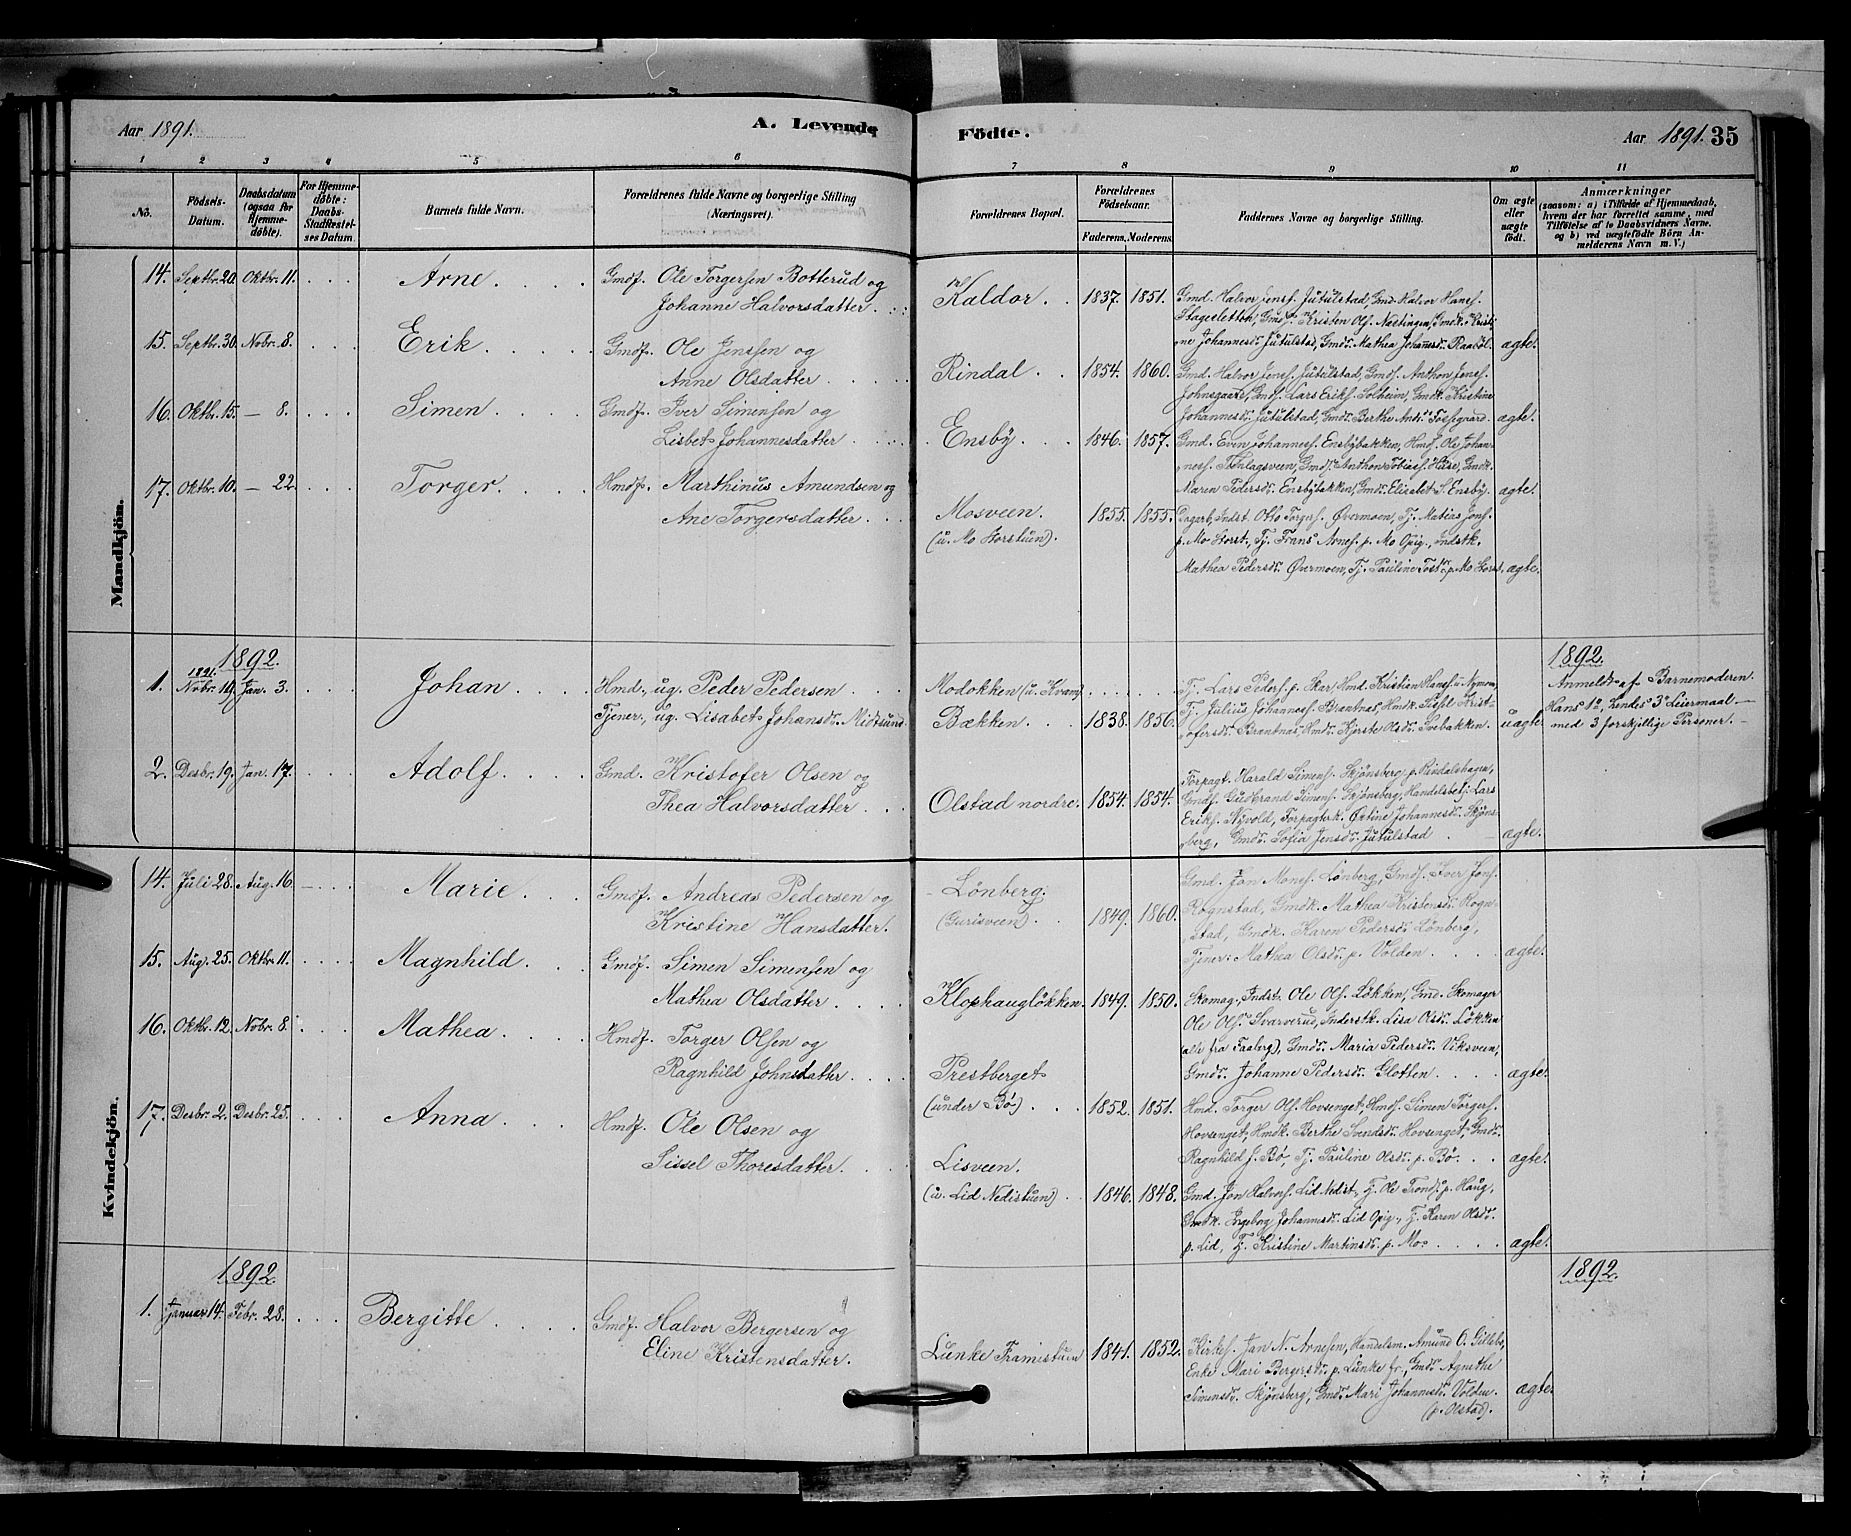 Aar 1891. A. Levende Fødte. Aar 1891. 35
1 2 3 4 5 6 7 8 9 10 11
No.
Fødsels-Datum.
Daabsdatum (ogsaa for Hjemmedøbte).
For Hjemmedøbte: Daabs-Stadfæstelses Datum.
Barnets fulde Navn.
Forældrenes fulde Navne og borgerlige Stilling (Næringsvei).
Forældrenes Bopæl.
Forældrenes Fødselsaar.
Faderens. Moderens.
Faddernes Navne og borgerlige Stilling.
Om ægte eller uægte født.
Anmærkninger
(saasom: a) i Tilfælde af Hjemmedaab,
hvem der har forrettet samme, med
Tilføielse af to Daabsvidners Navne,
og b) ved uægtefødte Børn An-
melderens Navn m. V.)
Mandkjøn.
14. Septbr. 20. Oktbr. 11. Arne Gmdf. Ole Torgersen Botterud og
Johanne Halvorsdatter
Kaldor 1837. 1851. Gmd. Halvor Jensf. Jutulstad, Gmd. Halvor Hansf.
Stagesletton, Gmdf. Kristen Olf. Nastingen, Gmdk. Kristi-
ne Johannesdr. Jutulstad, Gmdr. Mathea Johannesdr. Raabøl. ægte.
15. Septbr. 30. Novbr. 8. Erik Gmdf. Ole Jenssen og
Anne Olsdatter
Rindal 1854. 1860. Gmd. Halvor Jensf. Jutulstad, Gmdf. Anthon Jensf.
Johnsgaard, Gmdf. Lars Eriksf. Solheim, Gmdk. Kristine
Johannesdr. Jutulstad, Gmdr. Berthe Andr. Fossegaard. ægte.
16. Oktbr. 15. — 8. Simen Gmdf. Iver Simensen og
Lisbet Johannesdatter
Ensby 1846. 1857. Gmd. Even Johannesf. Ensbybakken, Hmdf. Ole Johan-
nesf. Anthon Tobiasf. Gmdk.
Maren Pedersdr. Ensbybakken, Gmdr. Elisabet S. Ensby. ægte.
17. Oktbr. 10. — 22. Torger Hmdf. Marthinus Amundsen og
Ane Torgersdatter
Mosveen (u. Mo Storstuen). 1855. 1855. Dagarb. Indst. Otto Torgersf. Øvermoen, Tj. Matias Jonsf.
p. Mo Storst., Tj. Frans Arnesf. p. Mo Opig., Indstk.
Mathea Pedersdr. Øvermoen, Tj. Pauline Tostdr. p. Mo Storst. ægte.
1892. 1892.
1. 1891. Novbr. 19. Jan. 3. Johan Hmd., ug. Peder Pedersen
Tjener, ug. Lisabet Johansdr. Midtsund
Modokken (u. Kvam)
Bækken 1838. 1856. Tj. Lars Pedersf. p. Skar, Hmd. Kristian Hansf. u. Nymoen,
Tj. Julius Johannesf. Brantnæs, Hmdk. Sissel Krist-
ofersdr. Brantnæs, Hmdr. Kjerste Olsdr. Svebakken. uægte
Anmeldt af Barnemoderen.
Hans 1ste, hendes 3die Leiermaal
med 3 forskjellige Personer.
2. Desbr. 19. Jan. 17. Adolf Gmd. Kristofer Olsen og
Thea Halvorsdatter
Olstad nordre. 1854. 1854. Forpagt. Harald Simensf. Skjønsberg p. Rindalshagen,
Gmdf. Gudbrand Simensf. Skjønsberg, Handelsbetj. Lars
Eriksf. Nyvold, Forpagterk. Oktine Johannesdr. Skjøns-
berg, Gmdr. Sofia Jensdr. Jutulstad ægte.
Kvindekjøn.
14. Juli 28. Aug. 16. Marie Gmdf. Andreas Pedersen og
Kristine Hansdatter.
Lønberg (Gurisveen) 1849. 1860. Gmd. Jon Monsf. Lønberg, Gmdf. Iver Jonsf.
Rognstad, Gmdk. Mathea Kristensdr. Rogn-
stad, Gmdk. Karen Pedersdr. Lønberg,
Tjener: Mathea Olsdr. p. Volden ægte.
15. Aug. 25. Oktbr. 11. Magnhild Gmdf. Simen Simensen og
Mathea Olsdatter
Klophaugløkken. 1849. 1850. Skomag., Indst. Ole Olsf. Løkken, Gmd. Skomager
Ole Olsf. Svarverud, Inderstk. Lisa Olsdr. Løkken
(alle fra Faaberg), Gmdr. Maria Pedersdr. Viksveen,
Gmdr. Johanne Pedersdr. Slotten ægte.
16. Oktbr. 12. Novbr. 8. Mathea Hmdf. Torger Olsen og
Ragnhild Johnsdatter
Prestberget (under Bø) 1852. 1851. Hmd. Torger Olsf. Hovsenget, Hmdf. Simen Torgersf.
Hovsenget, Hmdk. Berthe Svendsdr. Hovsenget, Gmdr.
Ragnhild J. Bø, Tj. Pauline Olsdr. p. Bø ægte.
17. Desbr. 2. Desbr. 25. Anna Hmdf. Ole Olsen og
Sissel Thoresdatter.
Lisveen. (u. Lid Nedistuen) 1846. 1848. Gmd. Jon Halvorsf. Lid Nedst., Tj. Ole Trondsf. p. Haug,
Gmdk. Ingeborg Johannesdr. Lid Opig., Tj. Karen Olsdr.
p. Lid, Tj. Kristine Martinsdr. p. Mo. ægte.
1892. 1892.
1. Januar 14. Febr. 28. Bergitte Gmdf. Halvor Bergersen og
Eline Kristensdatter.
Lunke Framistuen 1841. 1852. Kirkes. Jan N. Arnesen, Handelsm. Amund O. Gillebo,
Enke Mari Bergersdr. p. Lunke fr., Gmdr. Agnethe
Simensdr. Skjønsberg, Gmdr. Mari Johannesdr. Volden
(p. Olstad). ægte